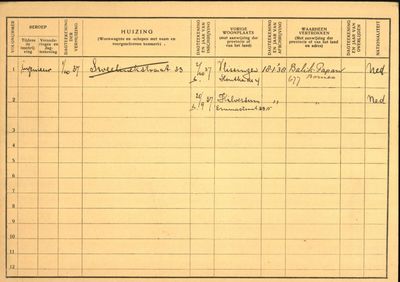 VOLGNUMMER
BEROEP
Tijdens
inschrij-
ving
DAGTEEKENING
DER
VERHUIZING
HUIZING
(Woonwagens en -schepen met naam en
voorgeschreven kenmerk)
DAGTEEKENING
EN JAAR VAN
INSCHRIJVING
VORIGE
WOONPLAATS
(met aanwijzing der
provincie of
van het land)
DAGTEEKENING
EN JAAR VAN
AFSCHRIJVING
WAARHEEN
VERTROKKEN
(Met aanwijzing der
provincie of van het land
en adres)
DAGTEEKENING
EN JAAR VAN
OVERLIJDEN
NATIONALITEIT
1 Ingenieur 1/10 37 Sweelinckstraat 33 37 Vlissingen 18 1 '38 Balik-Papan Ned
Borneo
2 20/9 37 Hilversum " " Ned
3
4
5
6
7
8
9
10
11
12